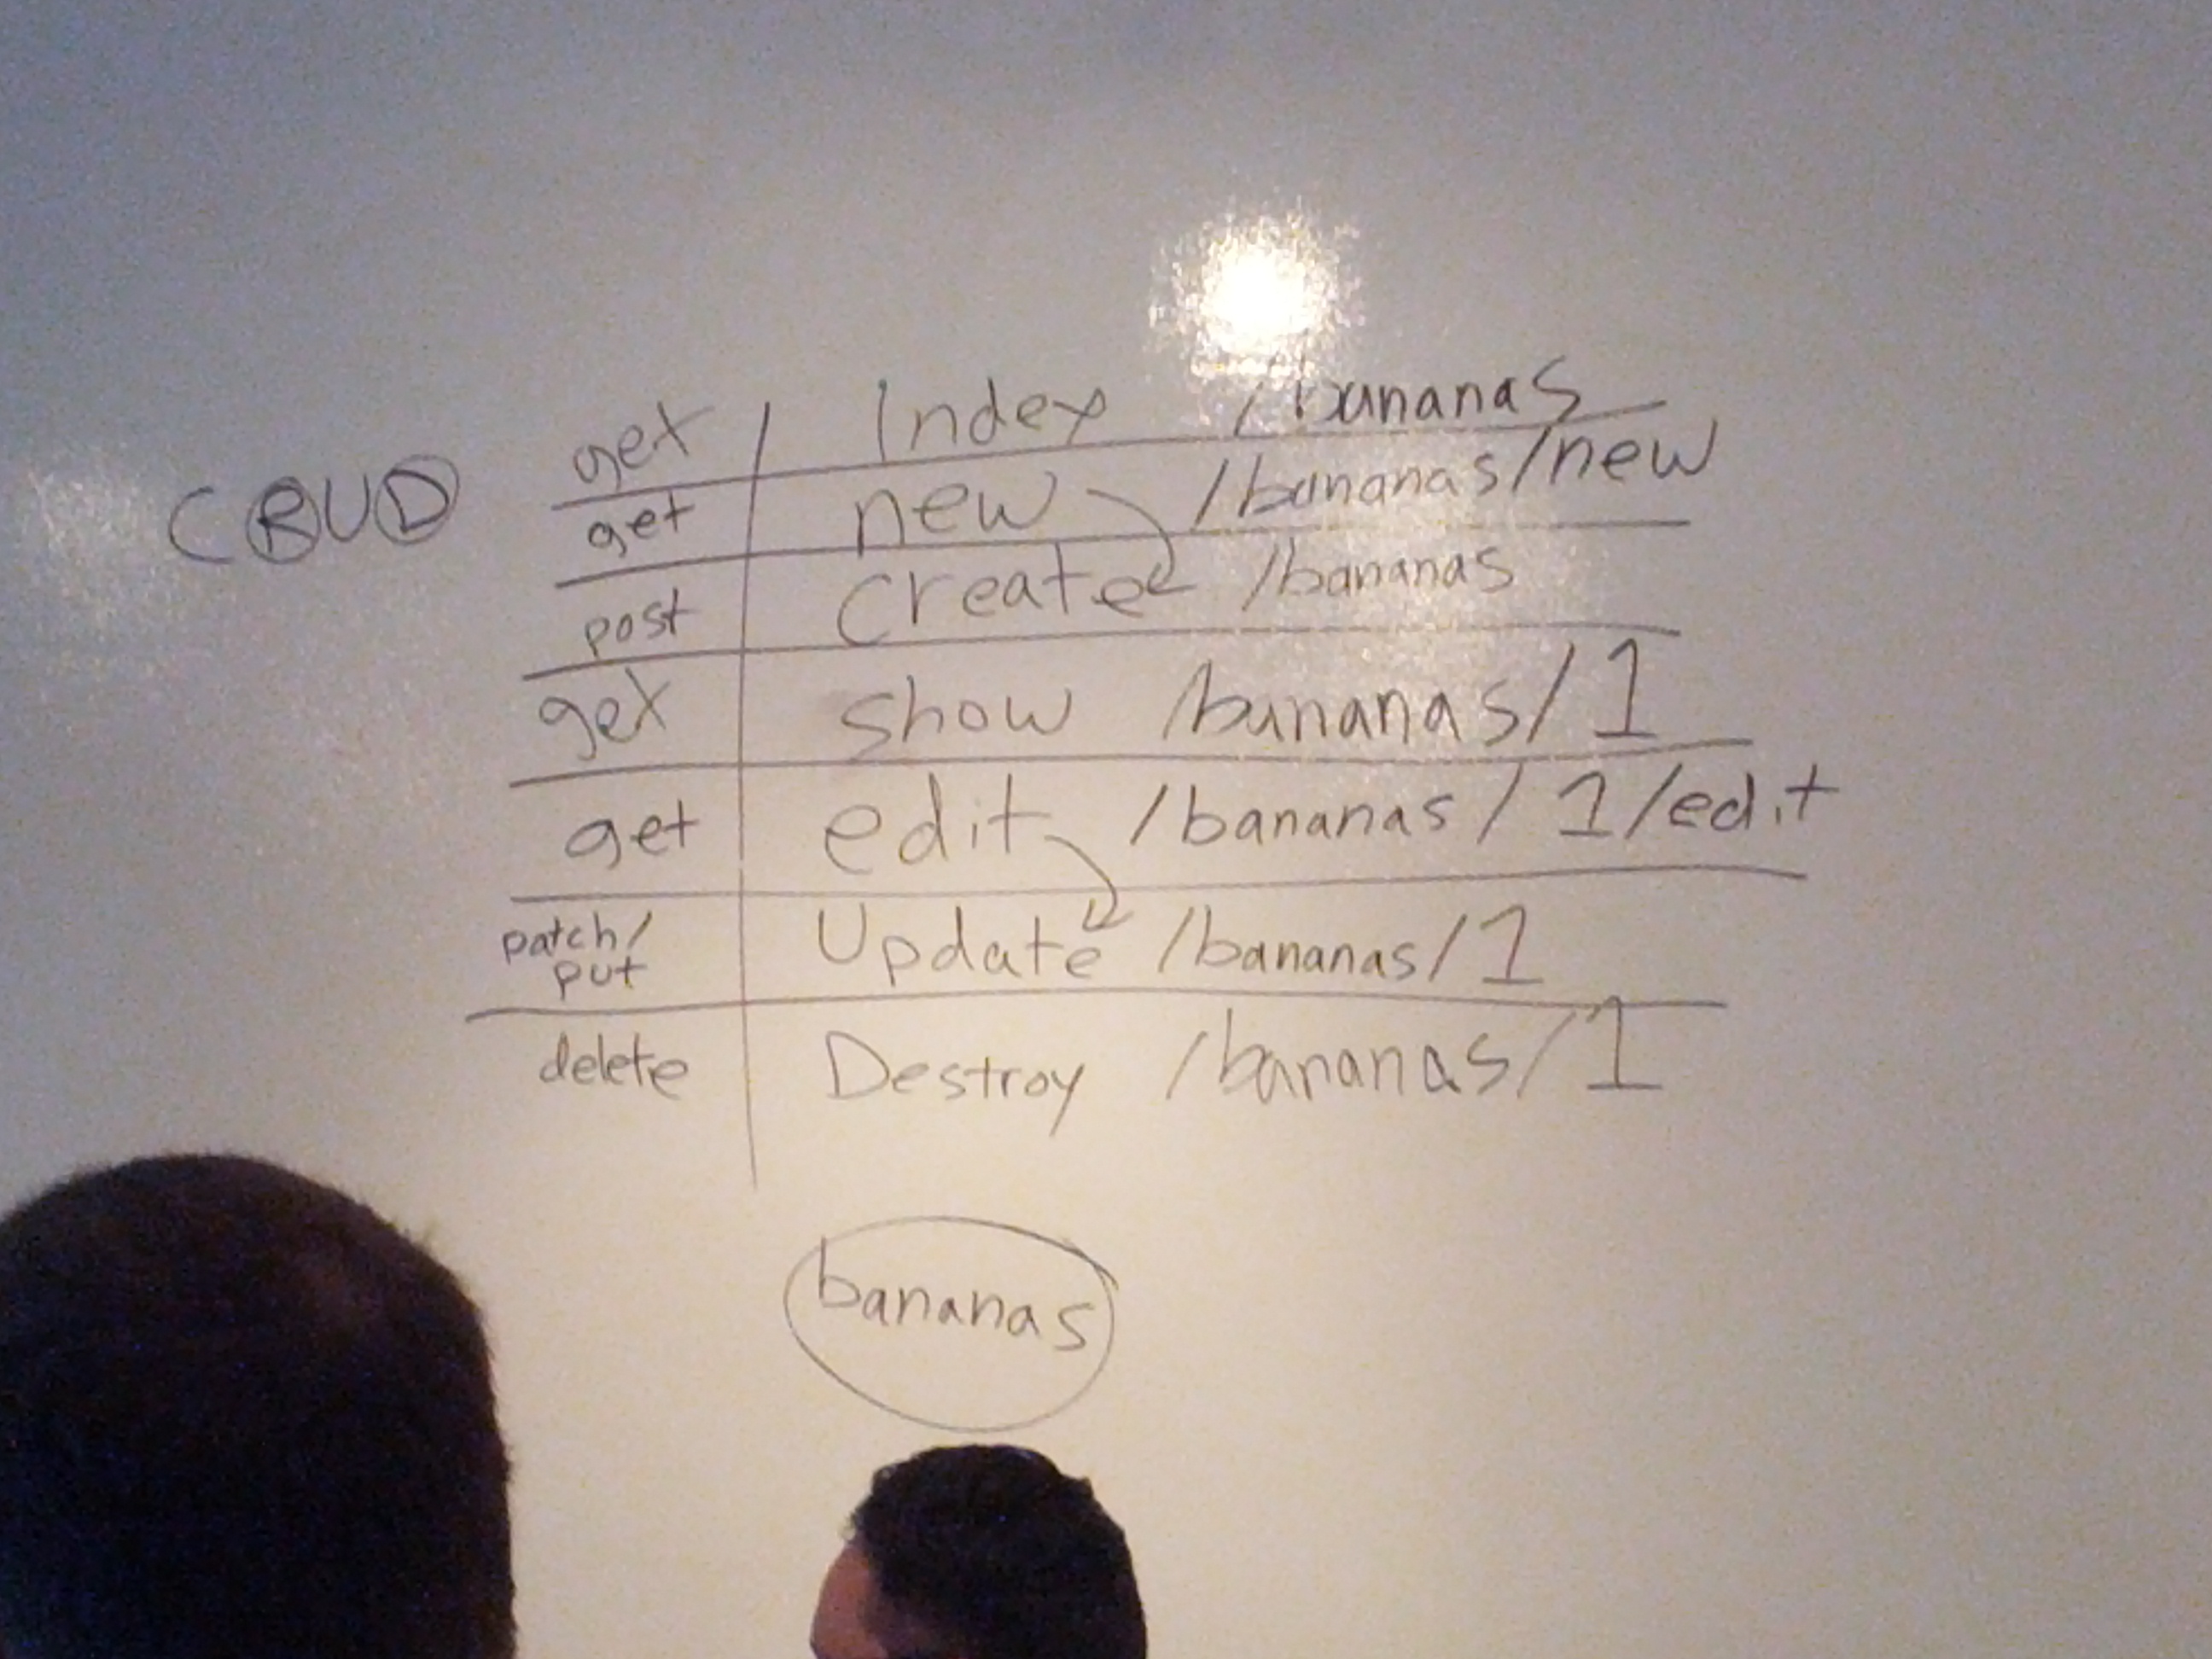 CRUD
get Index /bananas
get new /bananas/new
post Create /bananas
get show /bananas/1
get edit /bananas/1/edit
patch/
put Update /bananas/1
delete Destroy /bananas/1
bananas